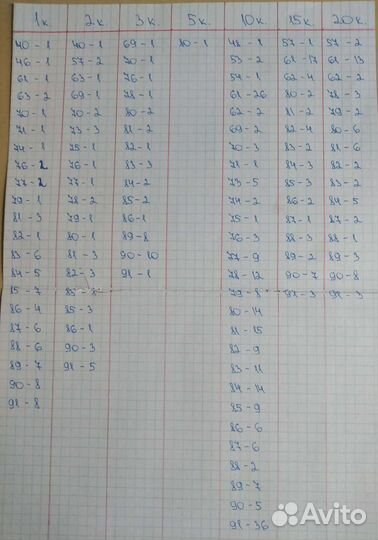 1к. 2к. 3к. 5к. 10к. 15к. 20к.
40-1 40-1 69-1 80-1 48-1 57-1 57-2
46-1 57-2 70-1 53-2 61-17 61-13
61-1 63-1 76-1 54-1 62-4 62-2
63-2 69-1 78-1 61-26 80-2 78-3
70-1 70-2 80-2 62-2 81-2 79-2
71-1 73-3 81-2 69-2 82-4 80-6
74-1 75-1 82-1 70-3 83-2 81-6
76-2 76-1 83-3 71-1 84-3 82-2
77-2 77-1 84-2 73-5 85-3 83-2
79-1 78-2 85-2 74-2 86-2 84-5
81-3 79-1 86-1 75-1 87-1 87-2
82-1 80-1 89-8 76-3 88-3 88-1
83-6 81-3 90-10 77-9 89-2 89-3
84-5 82-3 91-1 78-12 90-7 90-8
85-7 85-8 79-8 91-3 91-3
86-4 85-3 80-14
87-6 86-1 81-15
88-6 90-3 82-9
89-7 91-5 83-11
90-8 84-14
91-8 85-9
86-6
87-6
88-2
89-7
90-5
91-36
Avito